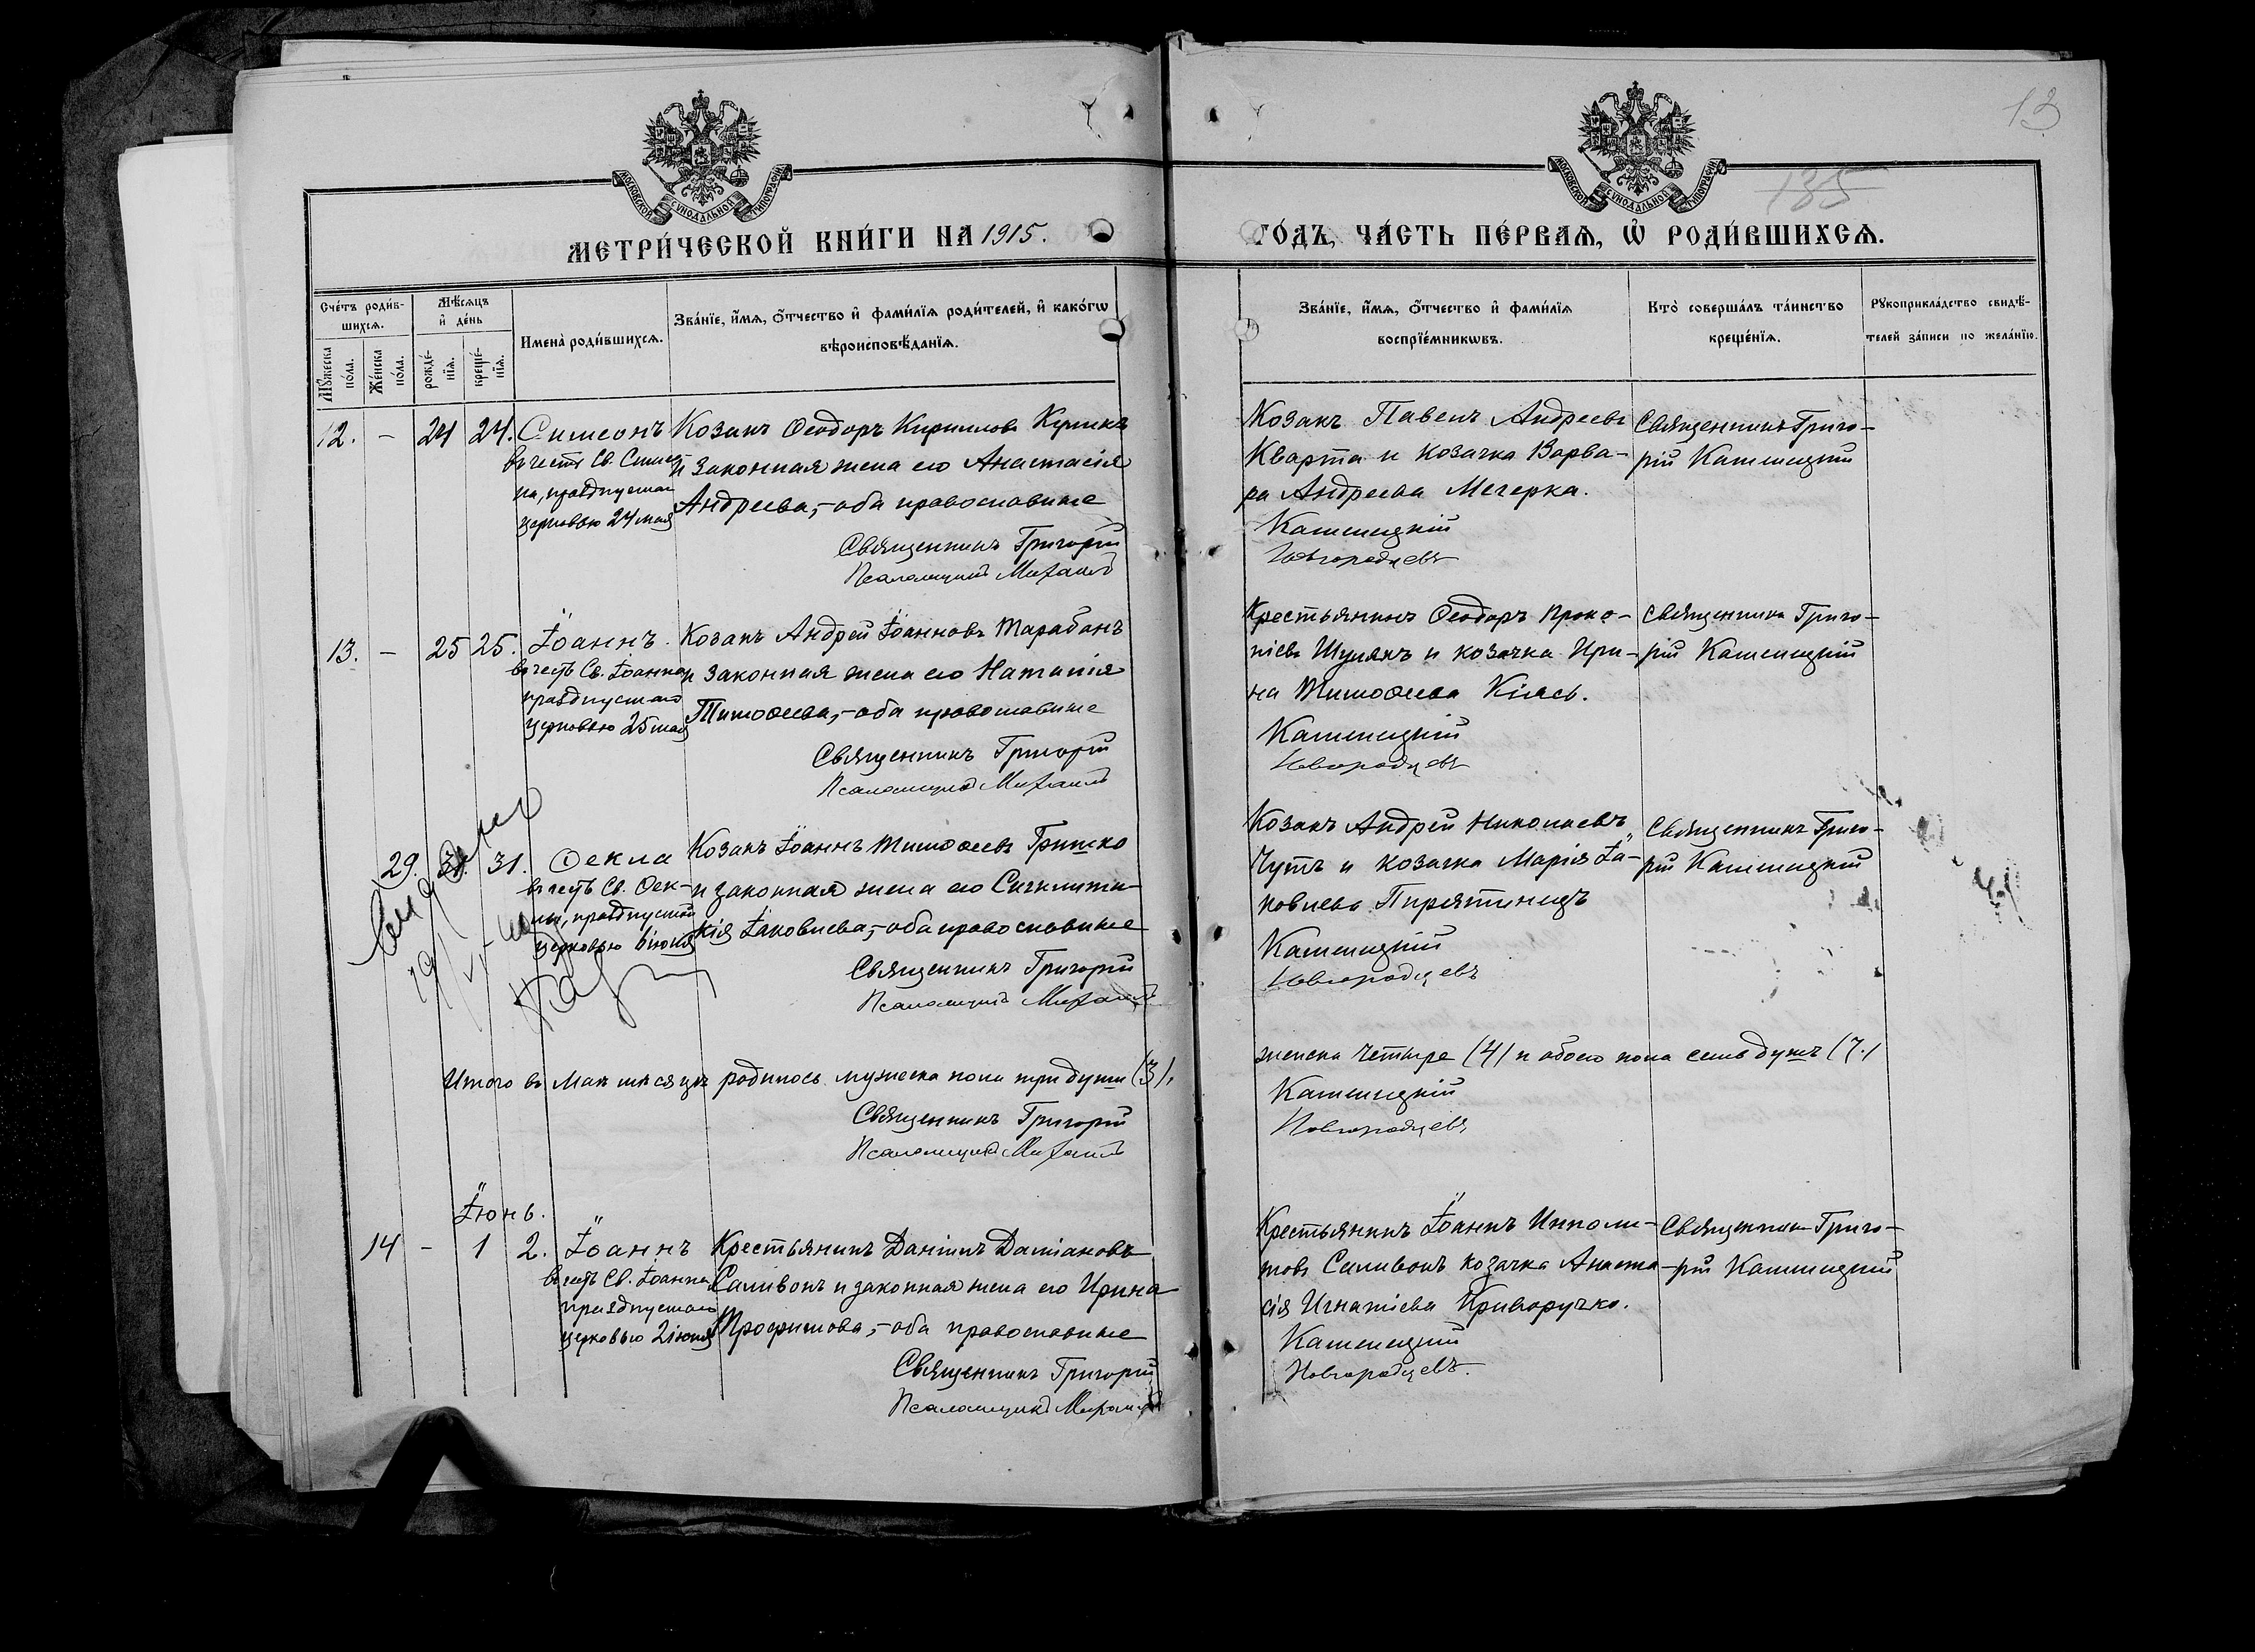 13
135
МОСКОВСКОЙ СѴНОДАЛЬНОЙ ТИПОГРАФІИ
МОСКОВСКОЙ СѴНОДАЛЬНОЙ ТИПОГРАФІИ
МЕТРИ́ЧЕСКОЙ КНИ́ГИ НА 1915.
ГО́ДЪ, ЧА́СТЬ ПЕ́РВАѦ, Ѡ҆ РОДИ́ВШИХСѦ.
Сче́тъ роди́в-
шихсѧ.
Мꙋ́жеска по́ла.
Же́нска по́ла.
Мѣ́сѧцъ
и҆ де́нь
рожде́-
нїѧ.
креще́-
нїѧ.
Имена̀ роди́вшихсѧ.
Зва́нїе, и҆́мѧ, ѻ҆́тчество и҆ фами́лїѧ роди́телей, и҆ како́гѡ
вѣроисповѣ́данїѧ.
Зва́нїе, и҆́мѧ, ѻ҆́тчество и҆ фами́лїѧ
воспрїе́мникѡвъ.
Кто̀ соверша́лъ та́инство
креще́нїѧ.
Рꙋкоприкла́дство свидѣ́-
телей за́писи по жела́нїю.
12. – 24 24. Симеонъ
въ честь Св. Симео-
на, празднуемаго
церковью 24 мая
Козакъ Ѳеодоръ Кирилловъ
и законная жена его Анастасія
Андреева, – оба православные
Священникъ Григорій
Псаломщикъ Михаилъ
Козакъ Павелъ Андреевъ
Кварта и козачка Варва-
ра Андреева Мечерка.
Каменецкій
Новгородцевъ
Священникъ Григо-
рій Каменецкій
13. – 25 25. Іоаннъ.
въ честь Св. Іоанна
празднуемаго
церковью 25 мая
Козакъ Андрей Іоанновъ Тарабанъ
и законная жена его Наталія
Тимоѳеева, – оба православные
Священникъ Григорій
Псаломщикъ Михаилъ
Крестьянинъ Ѳеодоръ Проко-
піевъ Шулякъ и козачка Ири-
на Тимоѳеева Кіясь.
Каменецкій
Новгородцевъ
Священникъ Григо-
рій Каменецкій
29. 31. 31. Ѳекла
въ честь Св. Ѳек-
лы, празднуемой
церковью 6 іюня
Козакъ Іоаннъ Тимоѳеевъ Гришко
и законная жена его Сигклити-
кія Іаковлева, – оба православные
Священникъ Григорій
Псаломщикъ Михаилъ
Козакъ Андрей Николаевъ
Чутъ и козачка Марія Іа-
ковлева Пирятинецъ
Каменецкій
Новгородцевъ
Священникъ Григо-
рій Каменецкій
Итого въ Маѣ мѣсяцѣ родилось мужеска пола три души (3),
женска четыре (4) и обоего пола семь душъ (7.)
Священникъ Григорій
Псаломщикъ Михаилъ
Каменецкій
Новгородцевъ
Іюнь.
14 – 1 2. Іоаннъ
въ честь Св. Іоанна
празднуемаго
церковью 2 іюня
Крестьянинъ Даніилъ Даміановъ
Саливонъ и законная жена его Ирина
Трофимова, – оба православные
Священникъ Григорій
Псаломщикъ Михаилъ
Крестьянинъ Іоаннъ Иппол-
товъ Саливонъ козачка Анаста-
сія Игнатіева Криворучко.
Каменецкій
Новгородцевъ.
Священникъ Григо-
рій Каменецкій